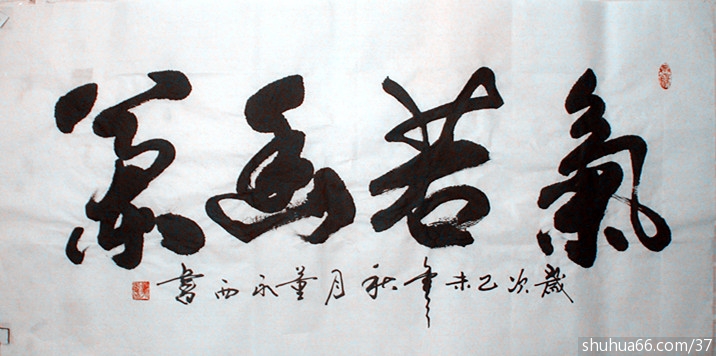 氣若幽蘭
歲次乙未年秋月董永西書
shuhua66.com/37